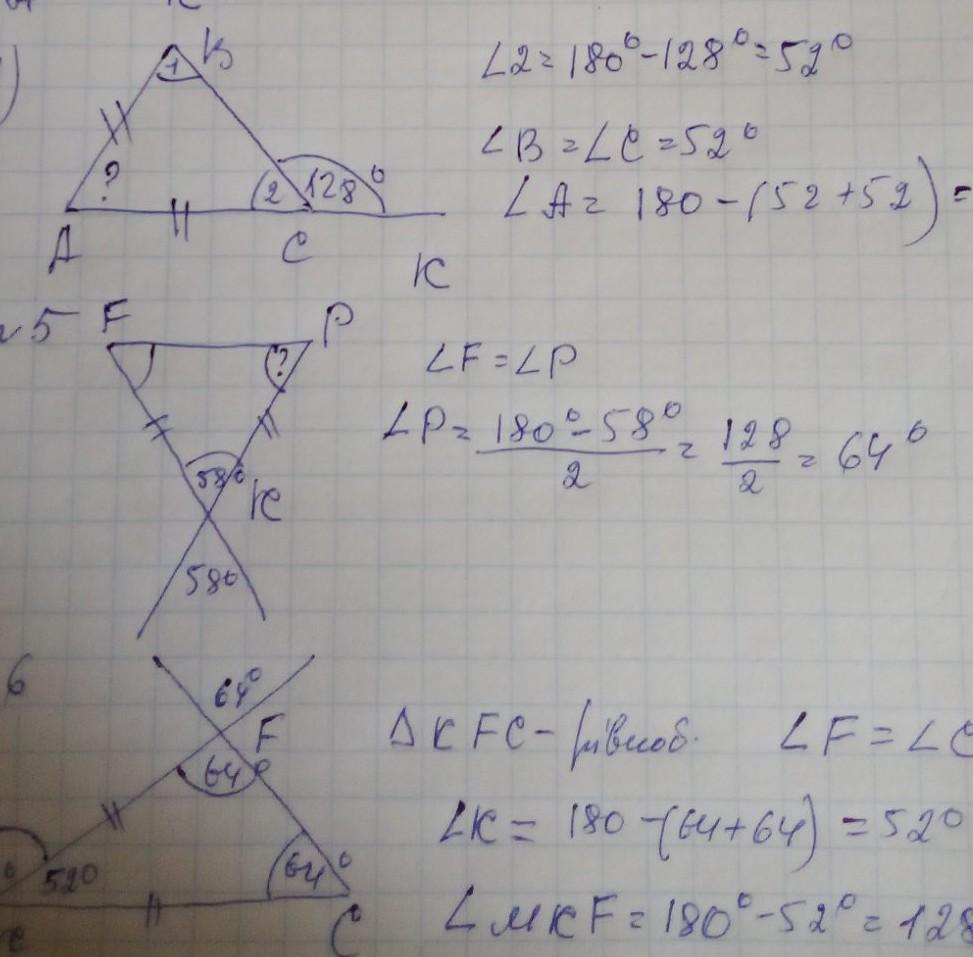 B
1
?
2 128°
A C K
∠2 = 180° - 128° = 52°
∠B = ∠C = 52°
∠A = 180 - (52 + 52) =
5 F P
?
58°
K
58°
∠F = ∠P
∠P = (180° - 58°)/2 = 128/2 = 64°
6
64°
F
64°
52°
64°
C
Δ KFC - рівноб. ∠F = ∠C
∠K = 180 - (64 + 64) = 52°
∠MKF = 180° - 52° = 128